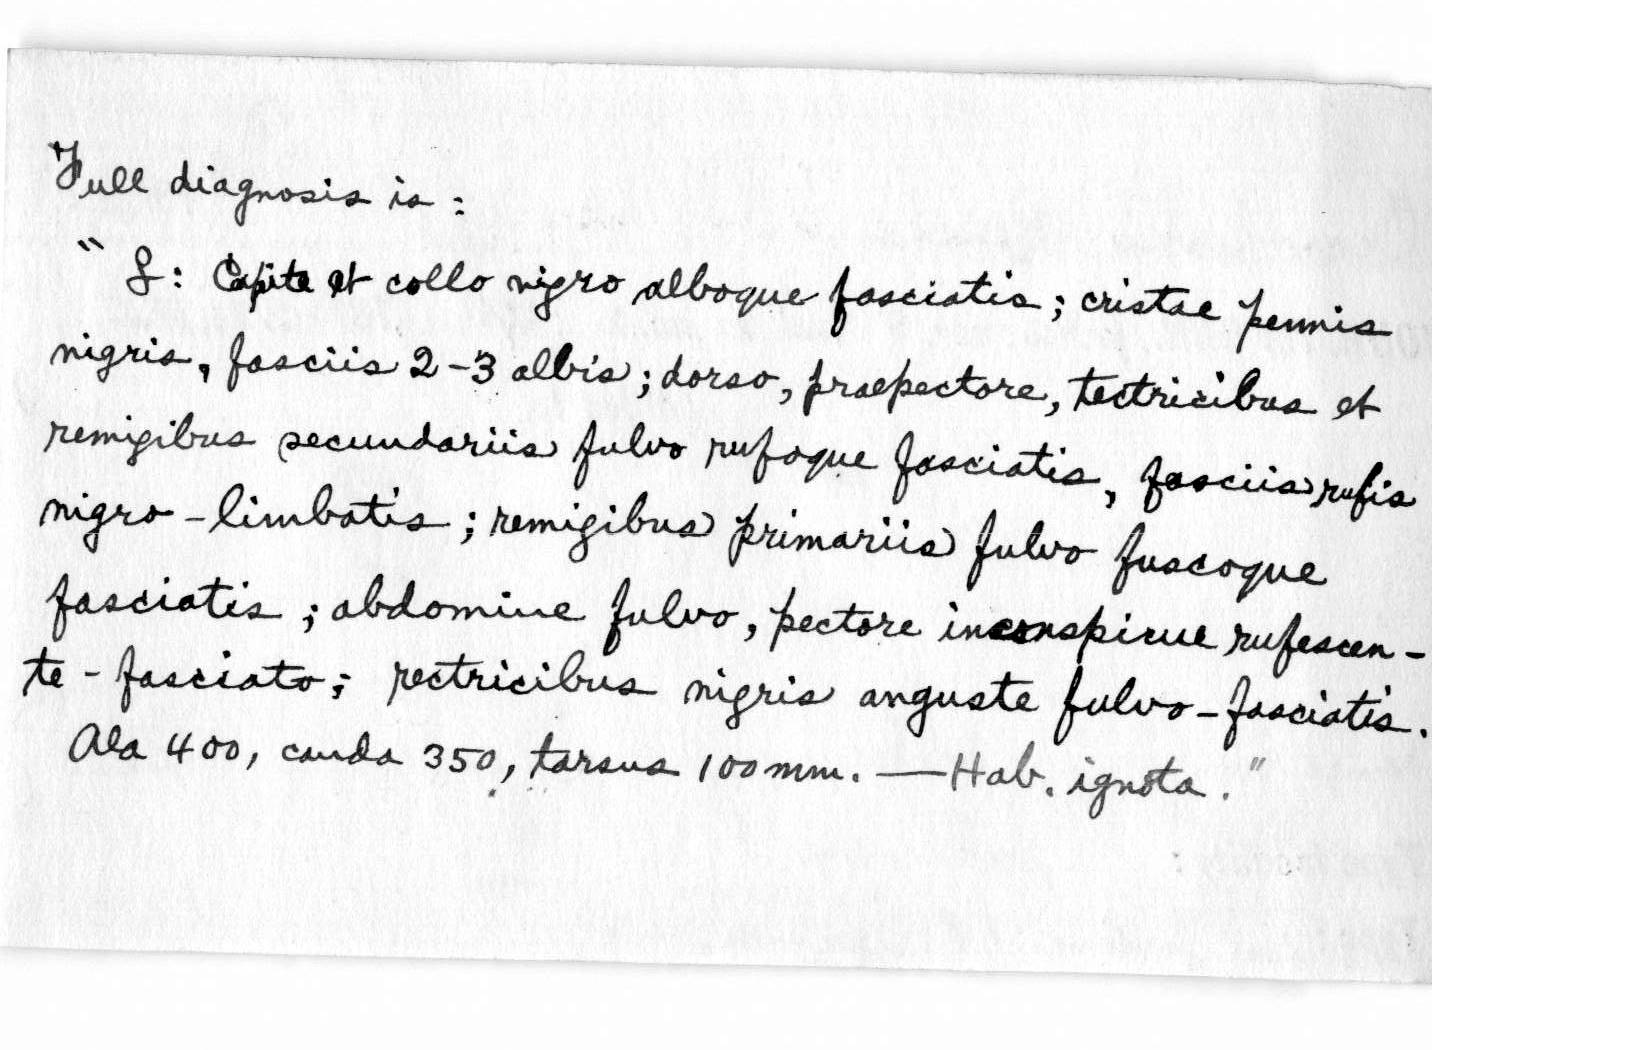 Full diagnosis is :
" ♀ : Capite et collo nigro alboque fasciatis ; cristae pennis
nigris, fasciis 2-3 albis ; dorso, praepectore, tectricibus et
remigibus secundariis fulvo rufoque fasciatis, fasciis rufis
nigro-limbatis ; remigibus primariis fulvo fuscoque
fasciatis ; abdomine fulvo, pectore inconspicue rufescen-
te-fasciato ; rectricibus nigris anguste fulvo-fasciatis.
Ala 400, cauda 350, tarsus 100 mm. — Hab. ignota. "